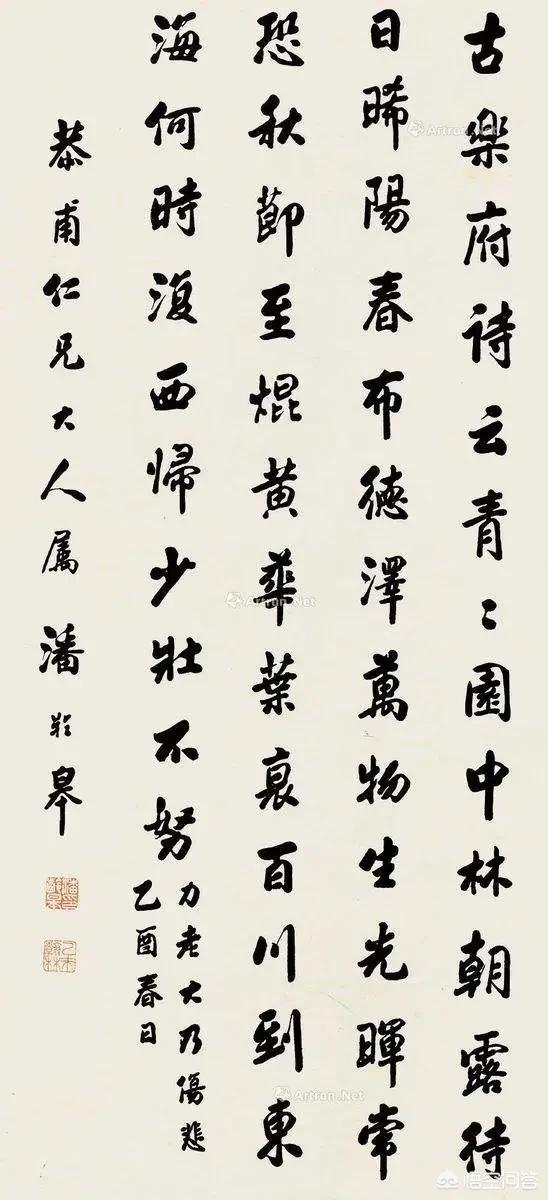 古樂府詩云青〻園中林朝露待
日晞陽春布德澤萬物生光暉常
恐秋節至焜黄華葉衰百川到東
海何時復西歸少壯不努
力老大乃傷悲
乙酉春日
恭甫仁兄大人屬 潘齡皋
Artron.Net
Artron.Net
Artron.Net
Artron.Net
Artron.Net
悟空问答